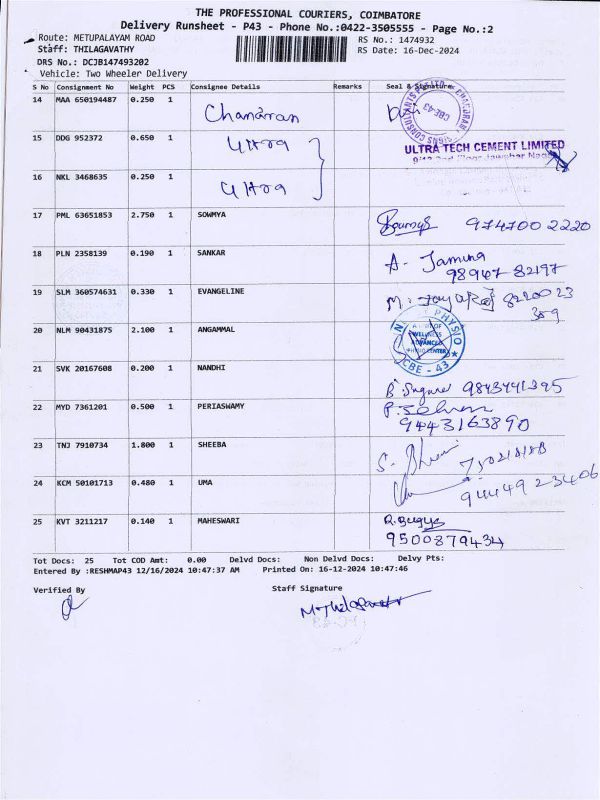 THE PROFESSIONAL COURIERS, COIMBATORE
Delivery Runsheet - P43 - Phone No.:0422-3505555 - Page No.:2
Route: METUPALAYAM ROAD
RS No.: 1474932
Staff: THILAGAVATHY
RS Date: 16-Dec-2024
DRS No.: DCJB147493202
Vehicle: Two Wheeler Delivery
S No Consignment No Weight PCS Consignee Details Remarks Seal & Signature
14 MAA 650194487 0.250 1 Chandran
CBE-43
15 DDG 952372 0.650 1 Ultra
ULTRA TECH CEMENT LIMITED
16 NKL 3468635 0.250 1 Ultra
17 PML 63651853 2.750 1 SOWMYA Sowmya 974700 2220
18 PLN 2358139 0.190 1 SANKAR A. Jamuna
98947 82197
19 SLM 360574631 0.330 1 EVANGELINE
20 NLM 90431875 2.100 1 ANGAMMAL
PHYSIO
WELLNESS
ADVANCED
CBE - 43
21 SVK 20167608 0.200 1 NANDHI
22 MYD 7361201 0.500 1 PERIASWAMY
9443163890
23 TNJ 7910734 1.800 1 SHEEBA
24 KCM 50101713 0.480 1 UMA
94449 23406
25 KVT 3211217 0.140 1 MAHESWARI
9500879434
Tot Docs: 25 Tot COD Amt: 0.00 Delvd Docs: Non Delvd Docs: Delvy Pts:
Entered By :RESHMAP43 12/16/2024 10:47:37 AM Printed On: 16-12-2024 10:47:46
Verified By
Staff Signature